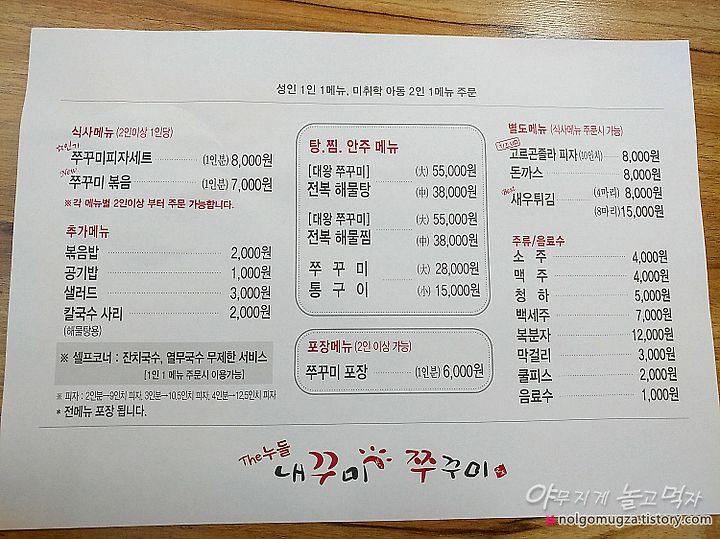 성인 1인 1메뉴, 미취학 아동 2인 1메뉴 주문
식사메뉴 (2인이상 1인당)
☆인기
쭈꾸미피자세트 (1인분) 8,000원
New
쭈꾸미 볶음 (1인분) 7,000원
※각 메뉴별 2인이상 부터 주문 가능합니다.
추가메뉴
볶음밥 2,000원
공기밥 1,000원
샐러드 3,000원
칼국수 사리 2,000원
(해물탕용)
※ 셀프코너 : 잔치국수, 열무국수 무제한 서비스
[1인 1 메뉴 주문시 이용가능]
※ 피자 : 2인분→9인치 피자, 3인분→10.5인치 피자, 4인분→12.5인치 피자
* 전메뉴 포장 됩니다.
탕.찜. 안주 메뉴
[대왕 쭈꾸미] (大) 55,000원
전복 해물탕 (中) 38,000원
[대왕 쭈꾸미] (大) 55,000원
전복 해물찜 (中) 38,000원
쭈 꾸 미 (大) 28,000원
통 구 이 (小) 15,000원
포장메뉴 (2인 이상 가능)
쭈꾸미 포장 (1인분) 6,000원
별도메뉴 (식사메뉴 주문시 가능)
고르곤졸라 피자 (10인치) 8,000원
돈까스 8,000원
Best
새우튀김 (4마리) 8,000원
(8마리) 15,000원
주류/음료수
소 주 4,000원
맥 주 4,000원
청 하 5,000원
백세주 7,000원
복분자 12,000원
막걸리 3,000원
쿨피스 2,000원
음료수 1,000원
The누들
내꾸미 쭈꾸미
야무지게 놀고먹자
nolgomugza.tistory.com